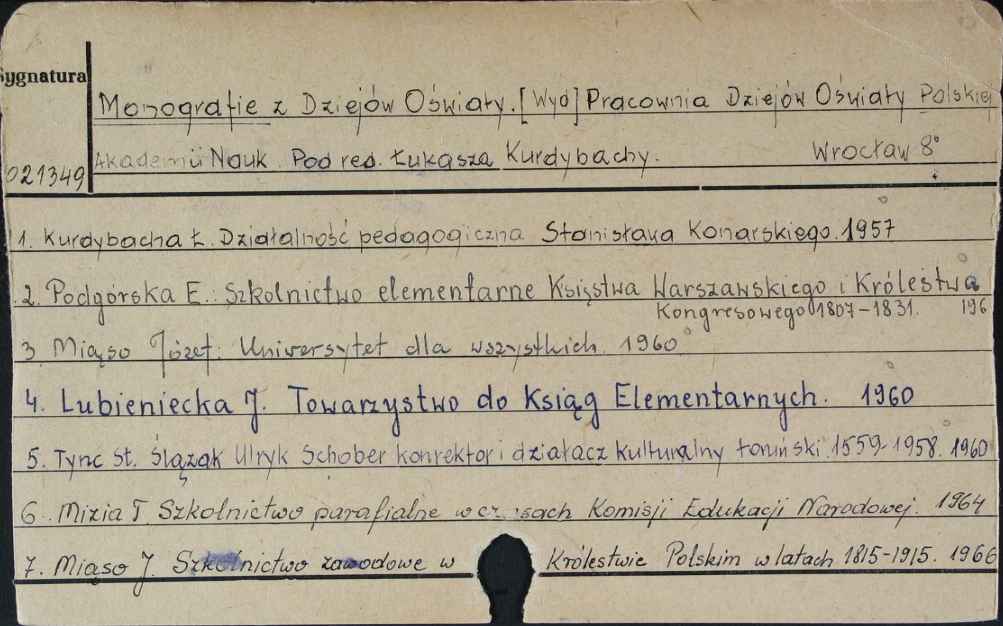 Sygnatura
Monografie z Dziejów Oświaty. [Wyd] Pracownia Dziejów Oświaty Polskiej
Akademii Nauk. Pod red. Łukasza Kurdybachy. Wrocław 8°
021349
1. Kurdybacha Ł. Działalność pedagogiczna Stanisława Konarskiego. 1957
2. Podgórska E.: Szkolnictwo elementarne Księstwa Warszawskiego i Królestwa
Kongresowego 1807-1831. 196
3 Miąso Józef: Uniwersytet dla wszystkich. 1960
4. Lubieniecka J. Towarzystwo do Ksiąg Elementarnych. 1960
5. Tync St. Ślązak Ulryk Schober konrektor i działacz kulturalny toruński. 1559-1958. 1960
6. Mizia T. Szkolnictwo parafialne w czasach Komisji Edukacji Narodowej. 1964
7. Miąso J. Szkolnictwo zawodowe w Królestwie Polskim w latach 1815-1915. 1966